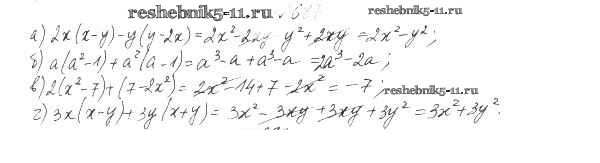 reshebnik5-11.ru reshebnik5-11.ru
а) 2x(x-y)-y(y-2x)=2x²-2xy y²+2xy=2x²-y²;
б) a(a²-1)+a²(a-1)=a³-a+a³-a=2a³-2a;
в) 2(x²-7)+(7-2x²)=2x²-14+7-2x²=-7; reshebnik5-11.ru
г) 3x(x-y)+3y(x+y)=3x²-3xy+3xy+3y²=3x²+3y².